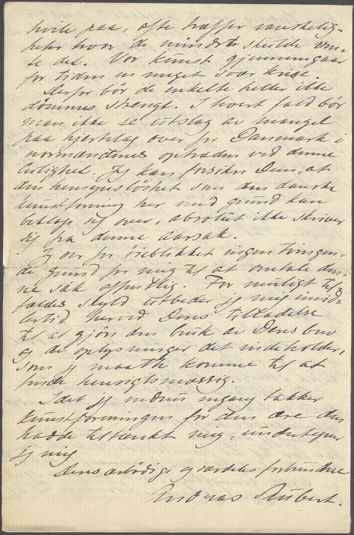 hvile paa, ofte træffer vanskelig-
heder hvor de mindst skulde ven-
te det. Vor kunst gjennemgaar
for tiden en meget svær krise.
Derfor bør de enkelte heller ikke
dømmes strengt. I hvert fald bør
man ikke se udslag av mangel
paa hjertelag over for Danmark i
normændenes optræden ved denne
leilighed. Jeg kan forsikre Dem, at
den hensynsløshet som den danske
kunstforening her med grund kan
beklage sig over, absolut ikke skriver
sig fra denne aarsak.
Jeg ser for øieblikket ingen tvingen-
de grund for mig til at omtale den-
ne sak offentlig. For muligt til-
fældes skyld udbeder jeg mig imid-
lertid herved Deres tilladelse
til at gjøre den bruk av Deres brev
og de oplysninger det indeholder,
som jeg maatte komme til at
finde hensigtsmæssig.
Idet jeg endnu engang takker
kunstforeningen for den ære den
hadde tiltænkt mig, undertegner
jeg mig
Deres ærbødige og særdeles forbundne
Andreas Aubert.